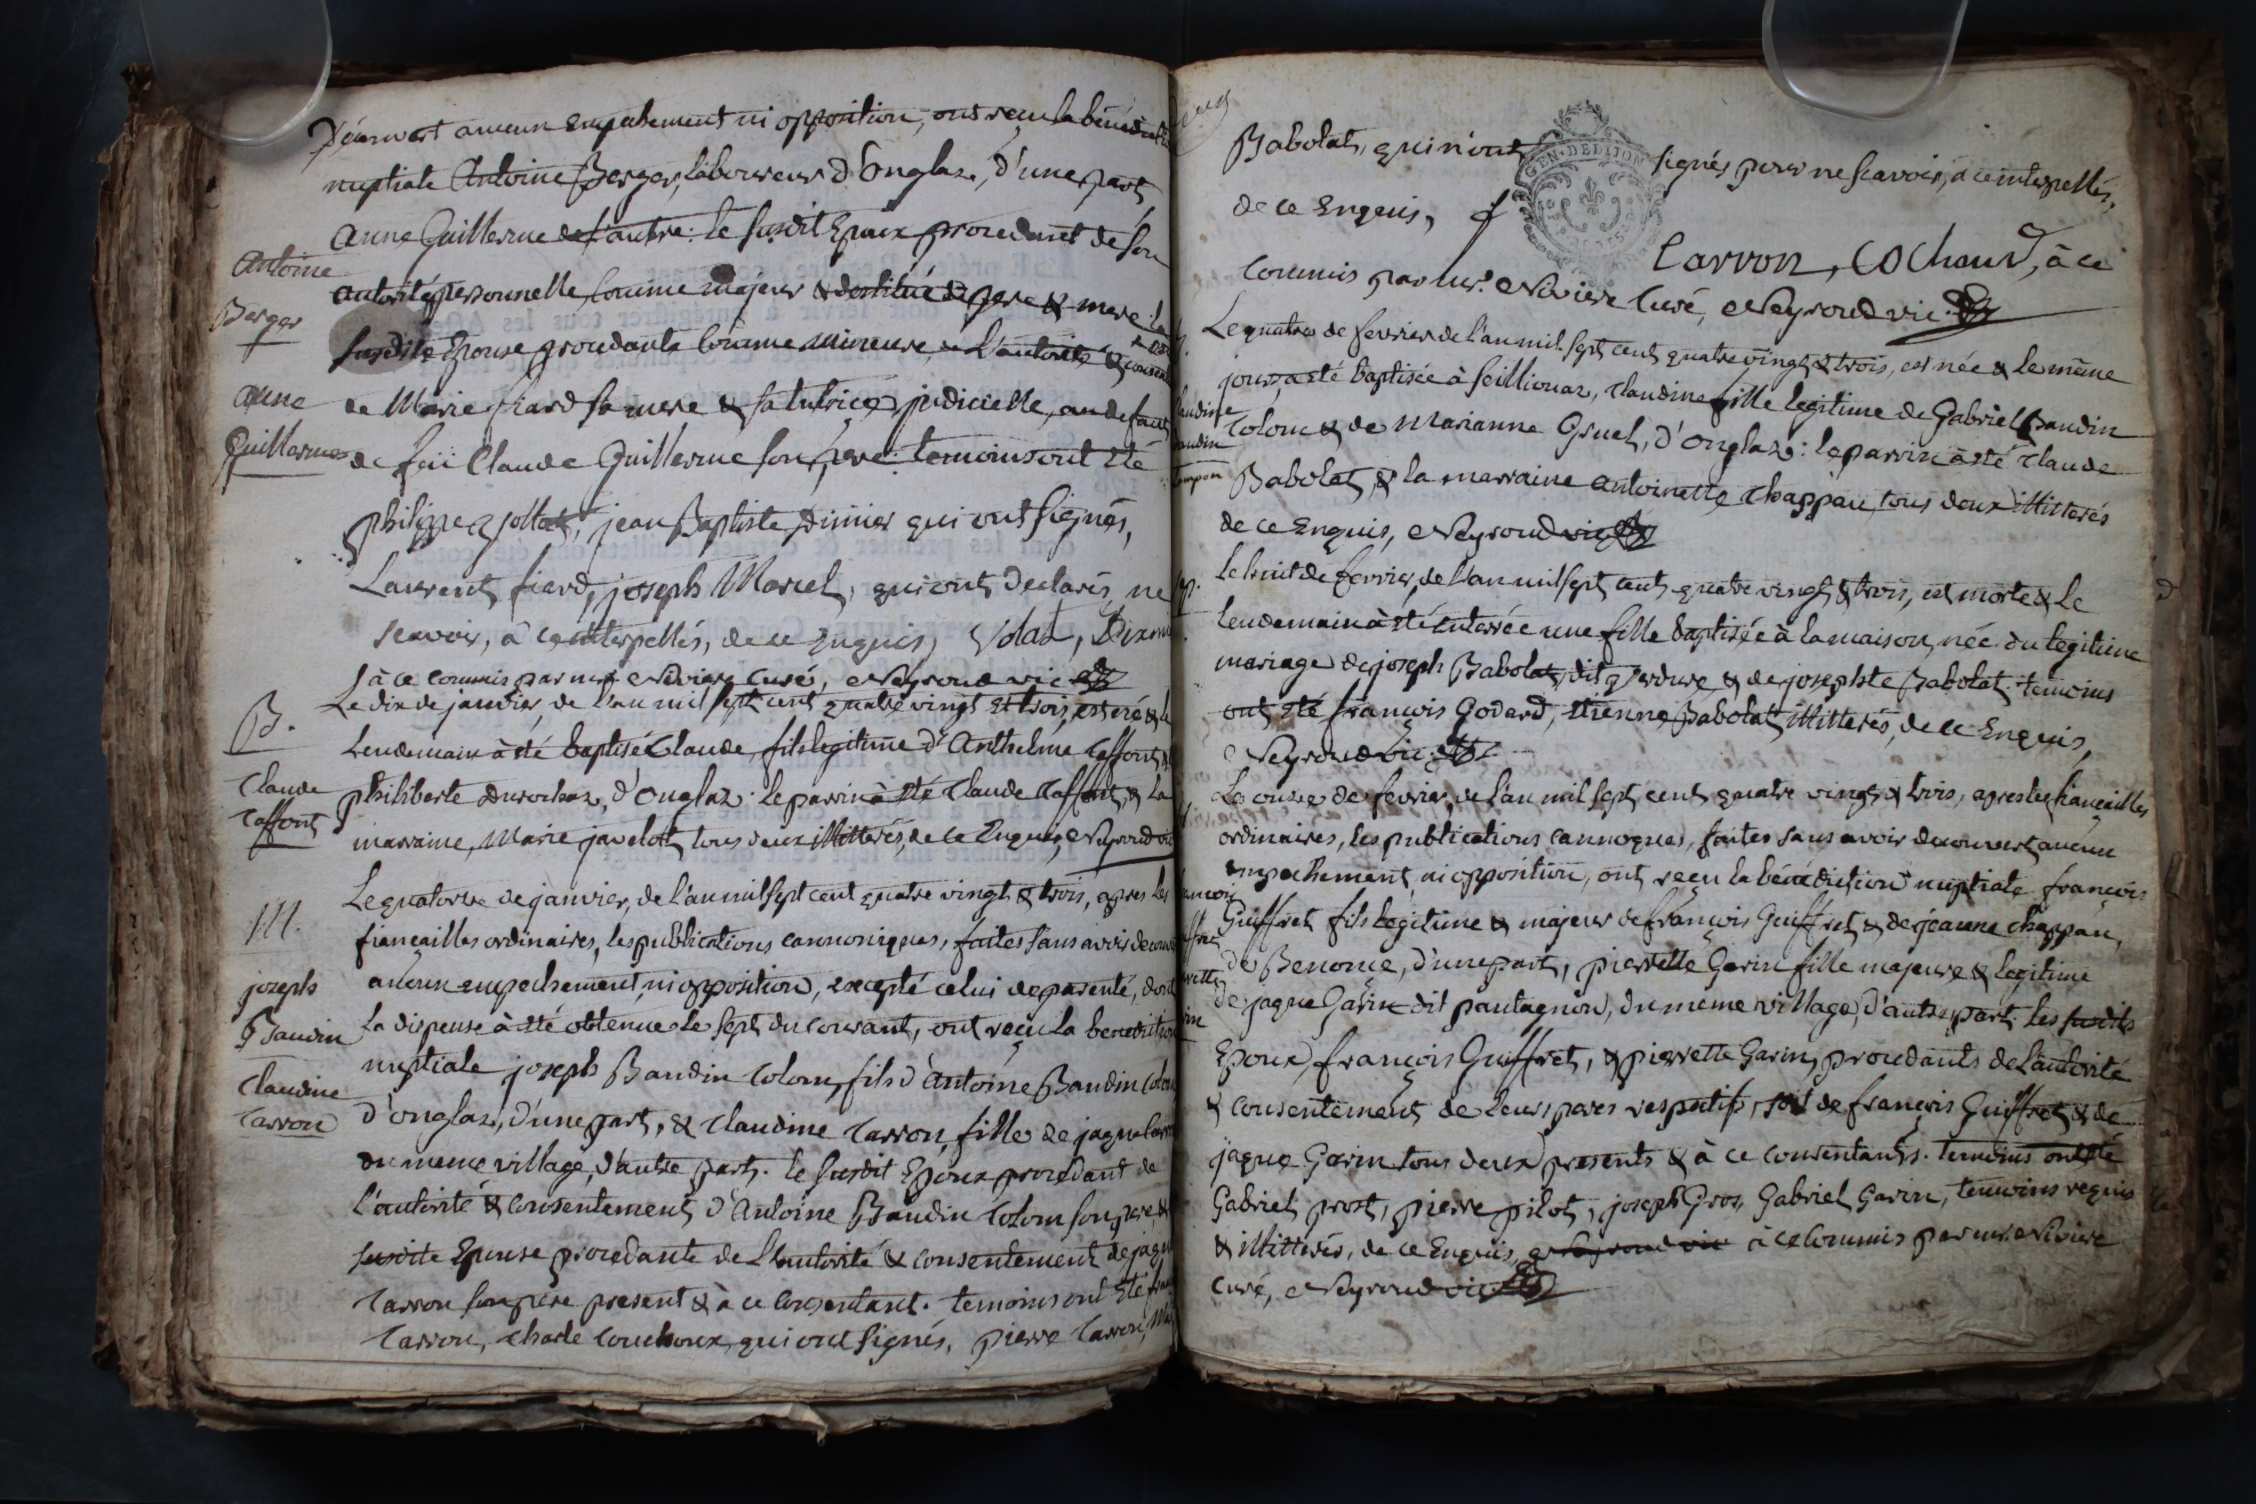 Découvert aucun empechement ni opposition, ont reçu la bénédiction
nuptiale Antoine Berger, laboureur d'Onglaz, d'une part
Anne Guillerme de l'autre: le susdit Epoux procedant de son
Antoine
autorité personnelle, comme majeur & destitué de pere & mere: la
Berger
susdite Epouse procedante comme mineure, de l'autorité &
Anne
de Marie fiard sa mere & sa tutrice judicielle, au defaut
Guillerme
de feü Claude Guillerme son pere: temoins ont été
philippe jollat, jean Baptiste Dimier qui ont signés,
Laurent fiard, joseph Marcel, qui ont declarés ne
scavoir, à ce interpellés, de ce Enquis,
à ce commis par mr Nivière Curé, Neyroud vic
B.
Le dix de janvier, de l'an mil sept cent quatre vingt et trois, est né & le
lendemain à été baptisé Claude, fils legitime d'Anthelme Caffont &
Claude
Caffont
philiberte Durochaz, d'Onglaz: le parrin à été Claude Caffont, & la
marraine, Marie javelot, tous deux illitterés, de ce Enquis, Neyroud vic
M.
Le quatorze de janvier, de l'an mil sept cent quatre vingt & trois, apres les
fiancailles ordinaires, les publications cannoniques, faites sans avoir decouvert
joseph
Baudin
aucun empechement, ni opposition, excepté celui de parenté, dont
la dispense à été obtenue le sept du courant, ont reçu la benediction
Claudine
Carron
nuptiale joseph Baudin Colom, fils d'Antoine Baudin Colom
d'onglaz, d'une part, & Claudine Carron, fille de jaque Carron
du meme village, d'autre part. le susdit Epoux procedant de
l'autorité & consentement d'Antoine Baudin Colom son pere, &
susdite Epouse procedante de l'autorité & consentement de jaque
Carron son pere present & à ce consentant. temoins ont été
Carron, Charle Couchoux, qui ont signés, pierre Carron,
Babolat, qui n'ont signés pour ne scavoir, à ce interpellés,
de ce Enquis,
Carron, Cochaud, à ce
commis par mr. Nivière Curé, Neyroud vic
Le quatre de fevrier de l'an mil sept cent quatre vingt & trois, est née & le même
jour, a été baptisée à seillionaz, Claudine fille legitime de Gabriel Baudin
Colom & de Marianne Gruel, d'Onglaz: le parrin à été Claude
Babolat, & la marraine Antoinette Chappau, tous deux illitterés
de ce Enquis, Neyroud vic
Le huit de fevrier, de l'an mil sept cent quatre vingt & trois, est morte & le
lendemain à été enterrée une fille baptisée à la maison, née du legitime
mariage de joseph Babolat, dit Verdure & de josephte Babolat: temoins
ont été François Godard, Etienne Babolat, illitterés, de ce Enquis,
Neyroud vic
Le onze de fevrier, de l'an mil sept cent quatre vingt & trois, apres les fiancailles
ordinaires, les publications cannoniques, faites sans avoir decouvert aucun
empechement, ni opposition, ont reçu la bénédiction nuptiale françois
Guiffret fils legitime & majeur de françois Guiffret & de jeanne Chappau,
de Benonce, d'une part, pierrette Garin fille majeure & legitime
de jaque Garin dit pantagnon, du meme village, d'autre part. les susdits
Epoux, françois Guiffret, & pierrette Garin, procedants de l'autorité
& consentement de leurs peres respectifs, soit de françois Guiffret & de
jaque Garin tous deux presents & à ce consentants. temoins ont été
Gabriel prost, pierre pilot, joseph Gros, Gabriel Garin, temoins requis
& illitterés, de ce Enquis, à ce commis par mr. Nivière
curé, Neyroud vic